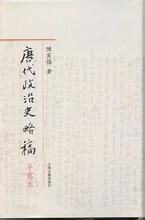 陳寅恪 著
唐代政治史略稿
手寫本
上海古籍出版社